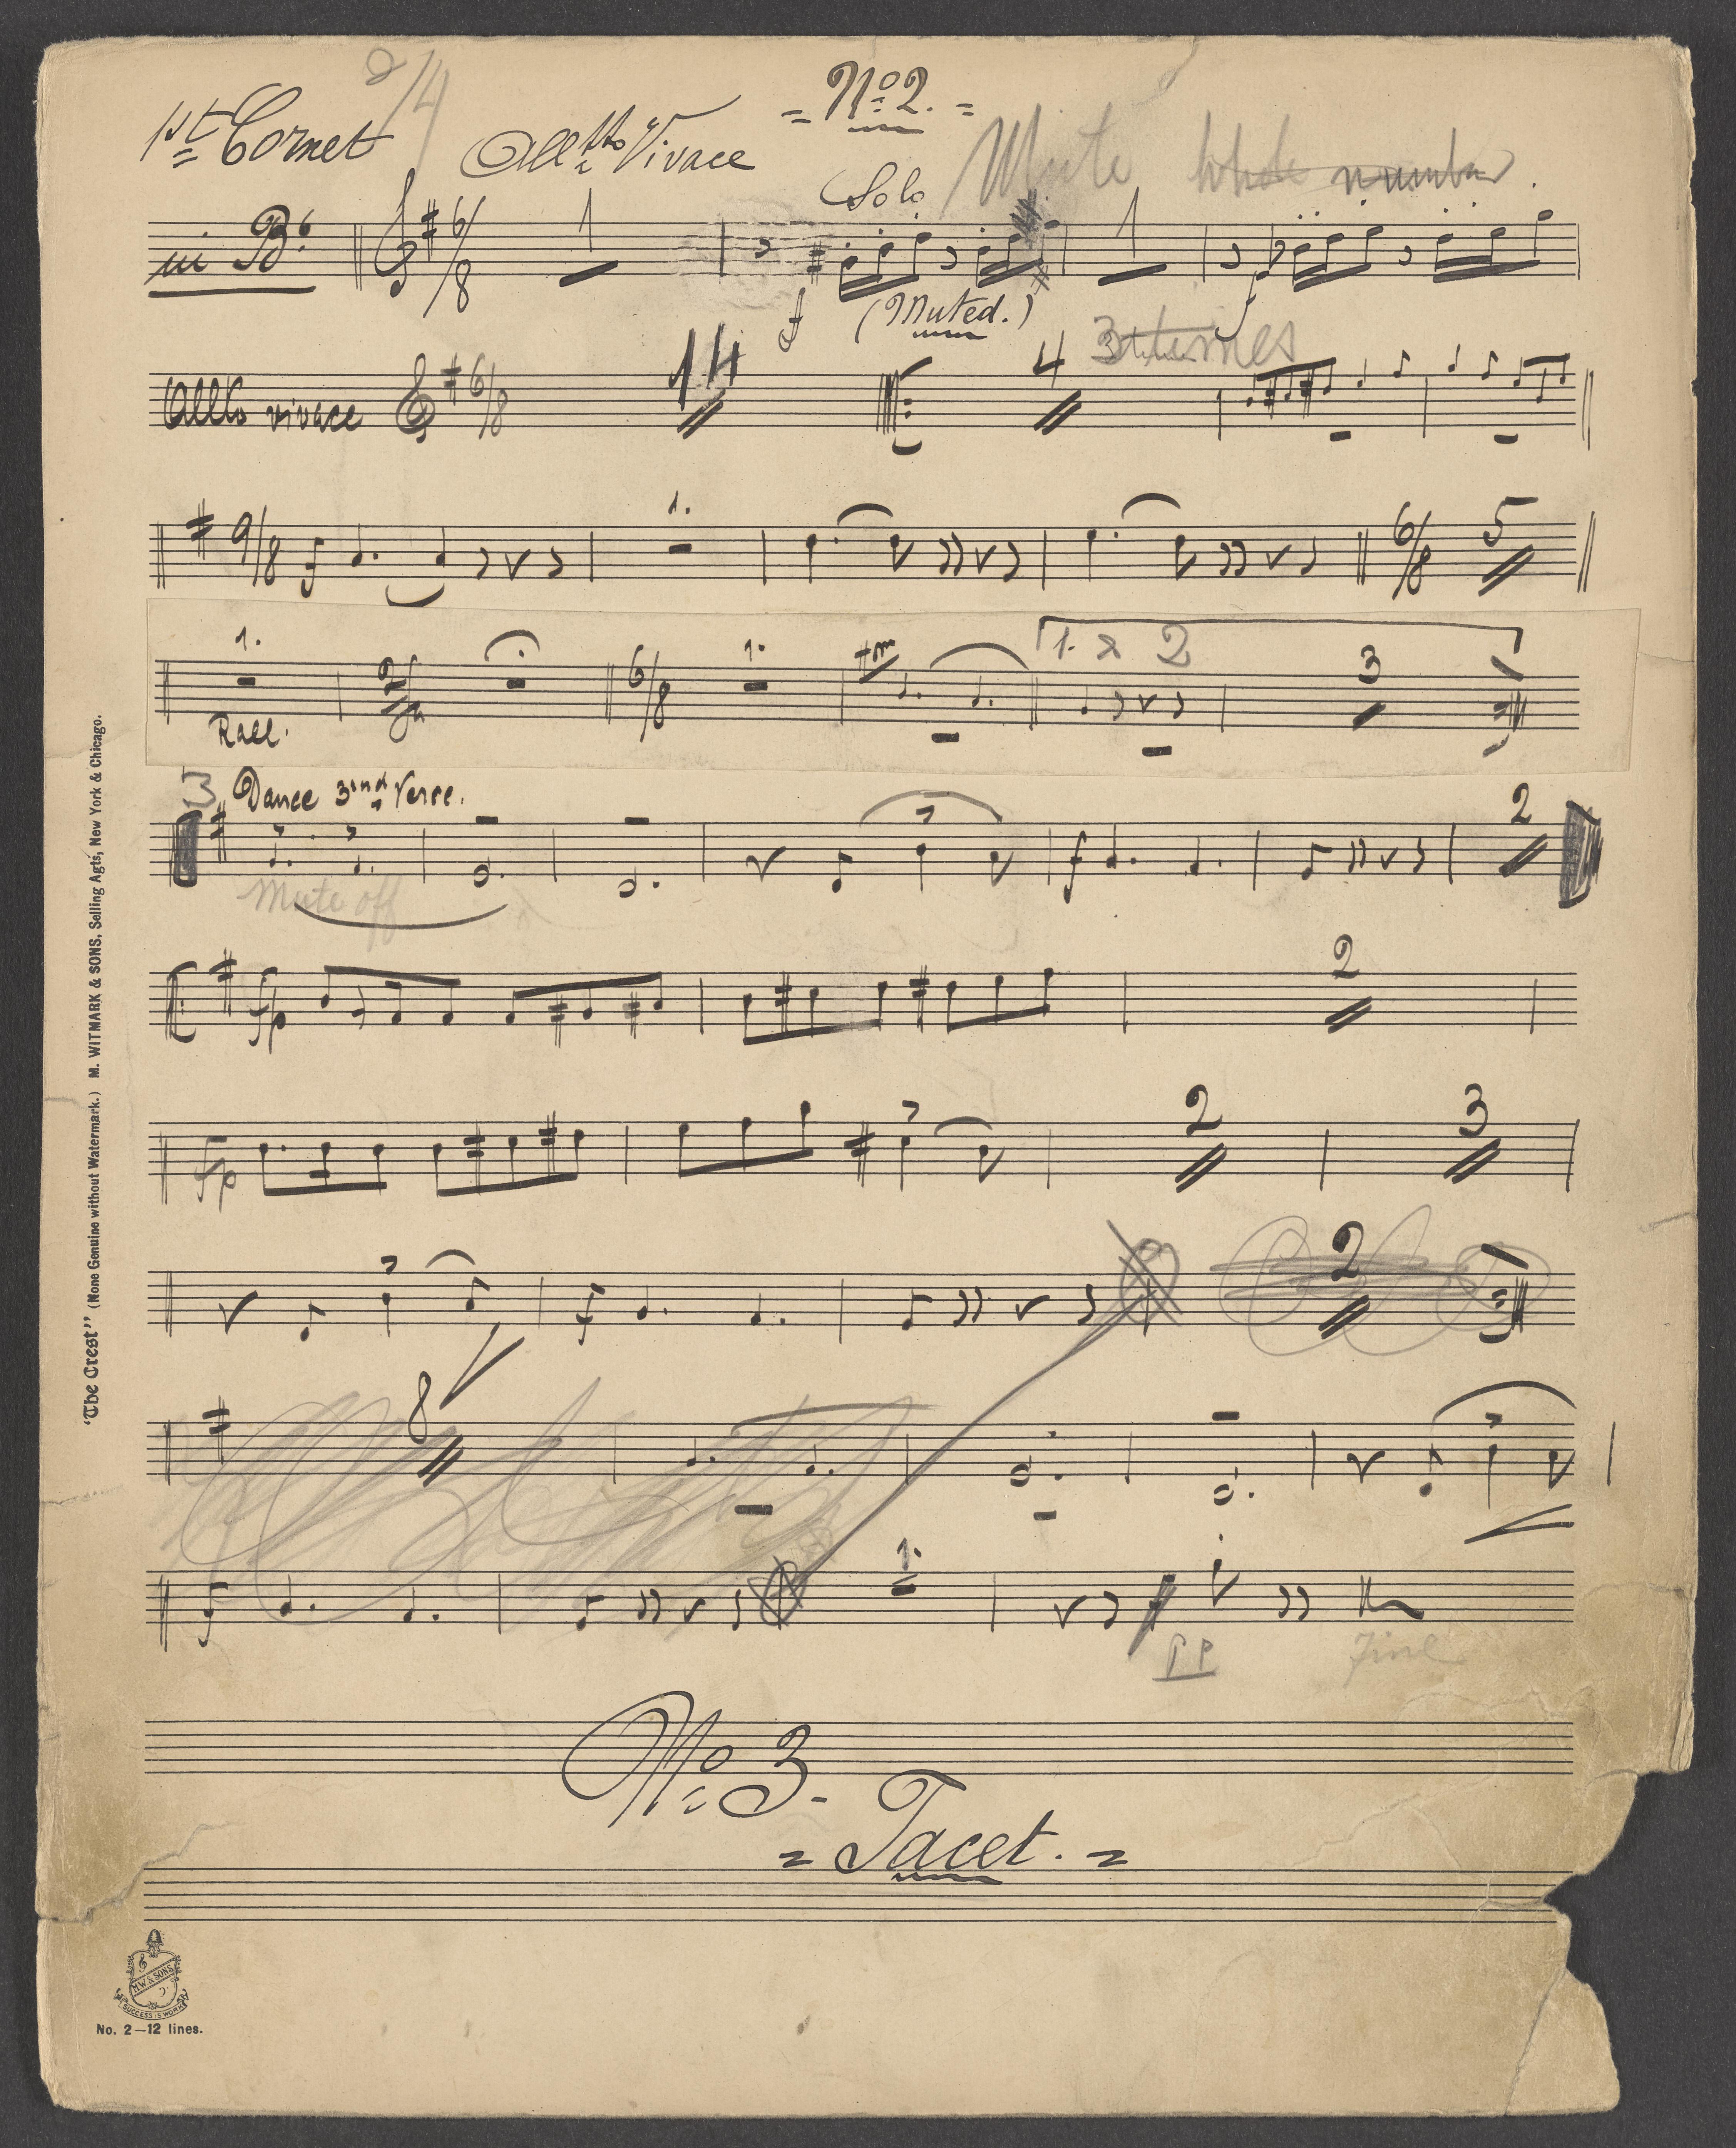 = No 2. =
1st Cornet
Alltto Vivace
Mute whole number.
Solo
in Bb
6/8 1 1
f (Muted.) f
3 times
Allto vivace 6/8 14 4
9/8 f 1. 6/8 5
1. 6/8 1. 1. & 2 3
Rall.
3 Dance 3rd Verse. 2
f
Mute off
fp 2
fp 2 3
f 2
8
f 1.
pp Fine
No 3.
= Tacet. =
"The Crest" (None Genuine without Watermark.) M. WITMARK & SONS, Selling Agts, New York & Chicago.
M.W. & SONS
SUCCESS IS WORK
No. 2—12 lines.